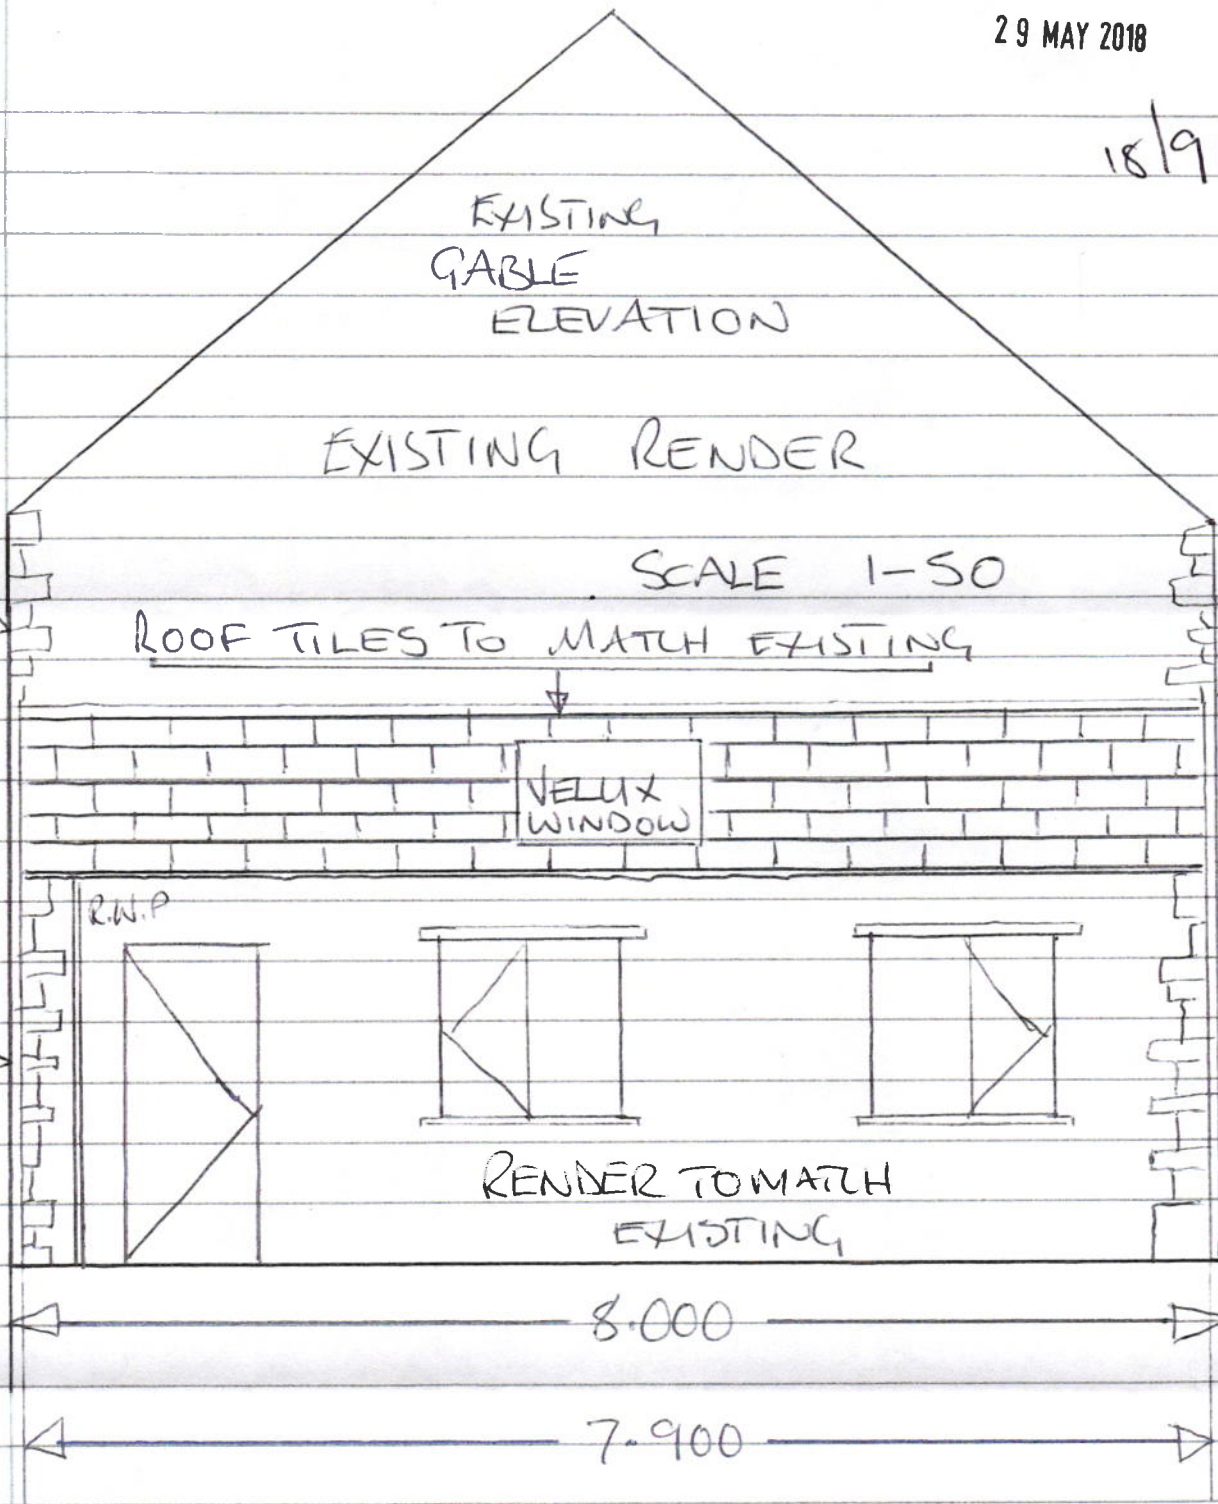 29 MAY 2018
18/9
EXISTING
GABLE
ELEVATION
EXISTING RENDER
SCALE 1-50
ROOF TILES TO MATCH EXISTING
VELUX
WINDOW
R.W.P
RENDER TO MATCH
EXISTING
8.000
7.900